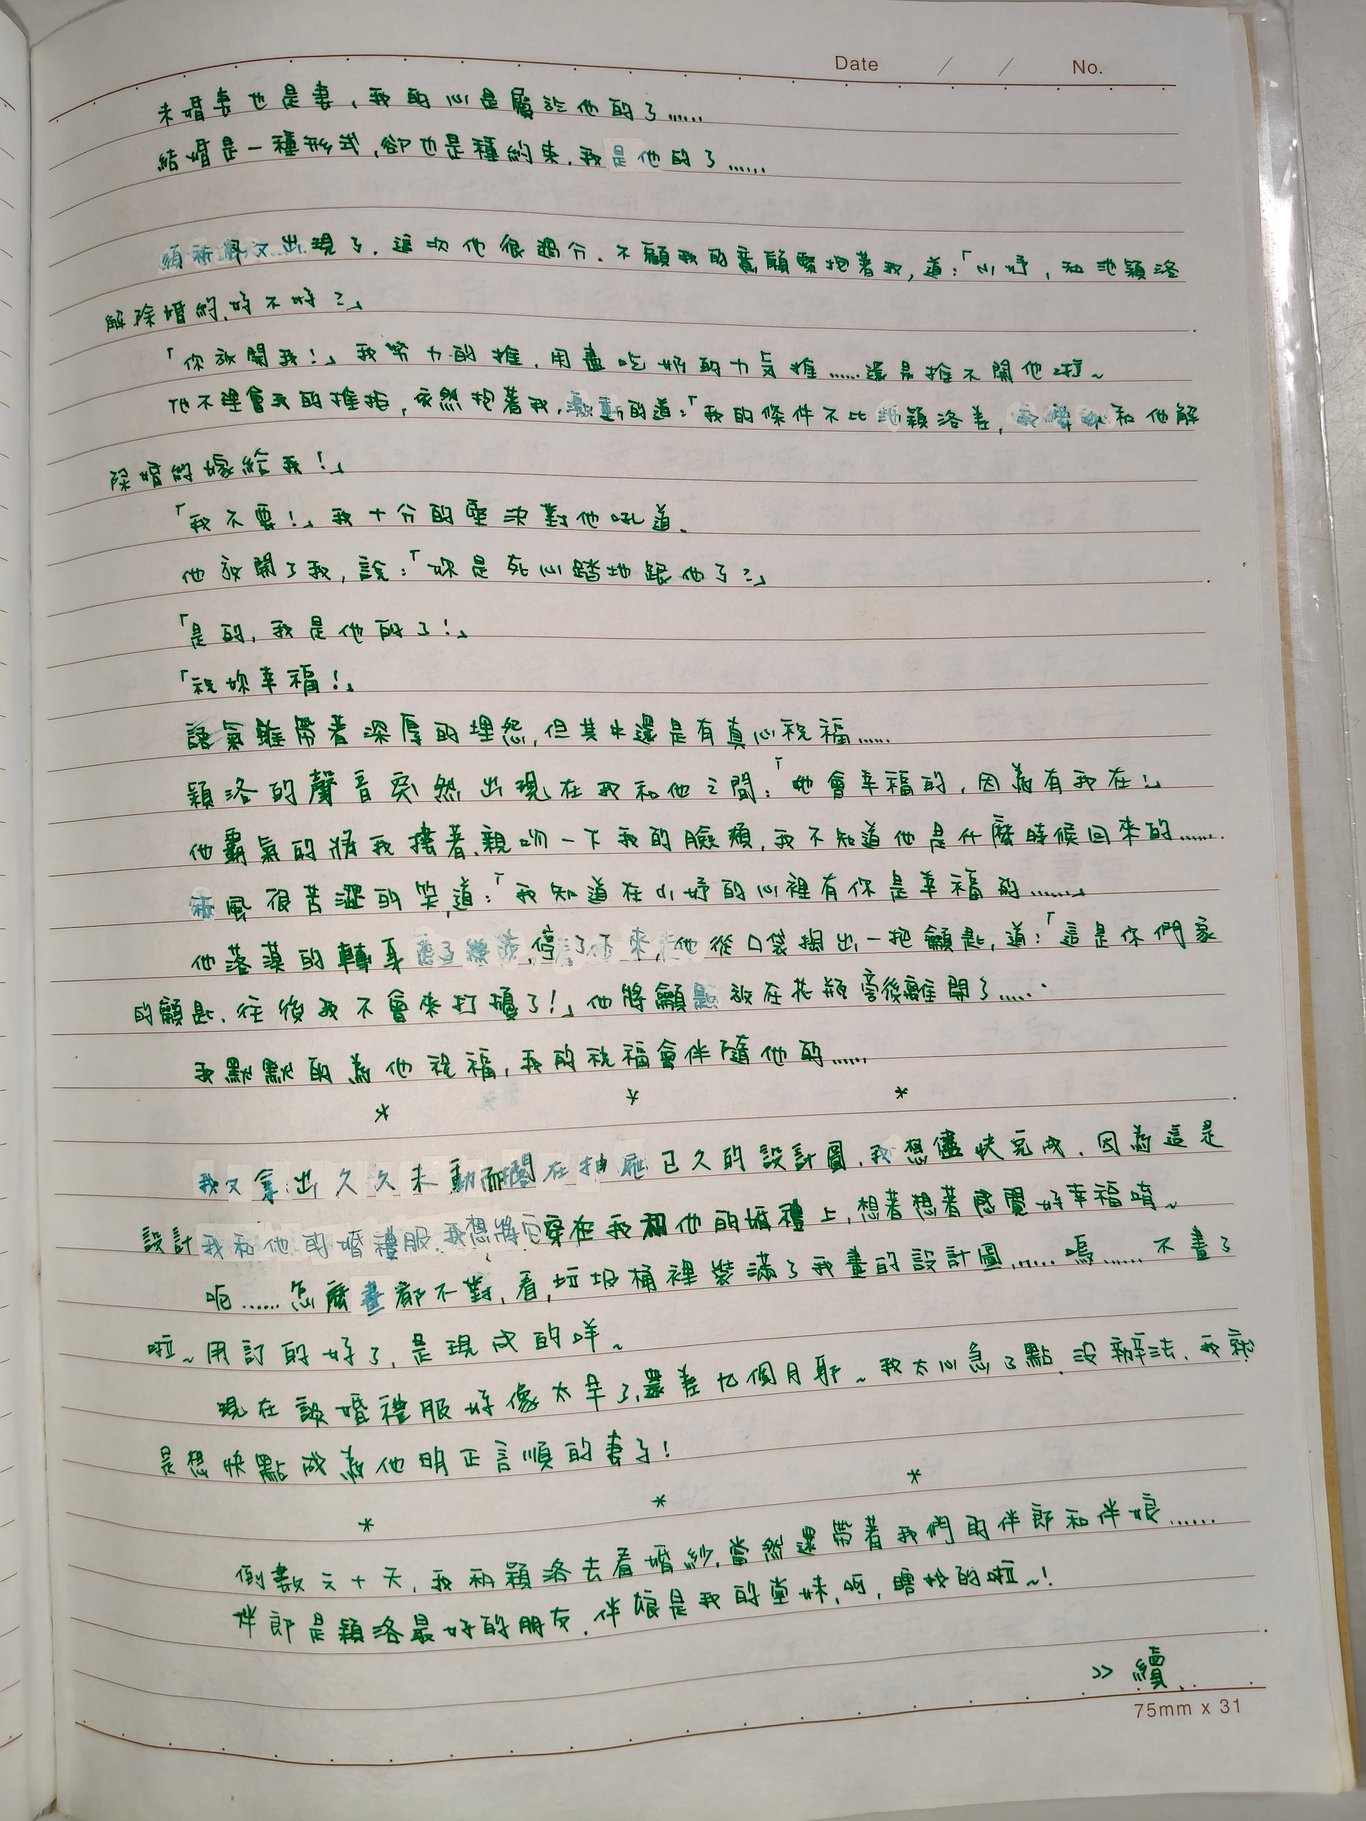 Date / / No.
未婚妻也是妻,我的心是屬於他的了……
結婚是一種形式,卻也是種約束,我是他的了……
出現了.這次他很過分.不顧我的意願緊抱著我,道:「小妤,和池穎洛
解除婚約,好不好?」
「你放開我!」我努力的推,用盡吃奶的力氣推……還是推不開他啦~
他不理會我的推拒,依然抱著我,激動的道:「我的條件不比池穎洛差,和他解
除婚約嫁給我!」
「我不要!」我十分的堅決對他吼道.
他放開了我,說:「妳是死心踏地跟他了?」
「是的,我是他的了!」
「祝妳幸福!」
語氣雖帶著深厚的埋怨,但其中還是有真心祝福……
穎洛的聲音突然出現在我和他之間:「她會幸福的,因為有我在!」
他霸氣的將我摟著,親吻一下我的臉頰,我不知道他是什麼時候回來的……
風很苦澀的笑,道:「我知道在小妤的心裡有你是幸福的……」
他落漠的轉身,停了下來,他從口袋掏出一把鑰匙,道:「這是你們家
的鑰匙.往後我不會來打擾了!」他將鑰匙放在花瓶旁後離開了……
我默默的為他祝福,我的祝福會伴隨他的……
* * *
我又拿出久久未動而擱在抽屜已久的設計圖,我想儘快完成.因為這是
設計我和他的婚禮服.我想將它穿在我和他的婚禮上,想著想著感覺好幸福唷~
呃……怎麼畫都不對,看,垃圾桶裡裝滿了我畫的設計圖……嗚……不畫了
啦~用訂的好了,是現成的咩~
現在談婚禮服好像太早了,還差九個月耶~我太心急了點.沒辦法.我就
是想快點成為他明正言順的妻子!
* * *
倒數六十天,我和穎洛去看婚紗,當然還帶著我們的伴郎和伴娘……
伴郎是穎洛最好的朋友.伴娘是我的堂妹,呵,瞎找的啦~!
>> 續.
75mm x 31